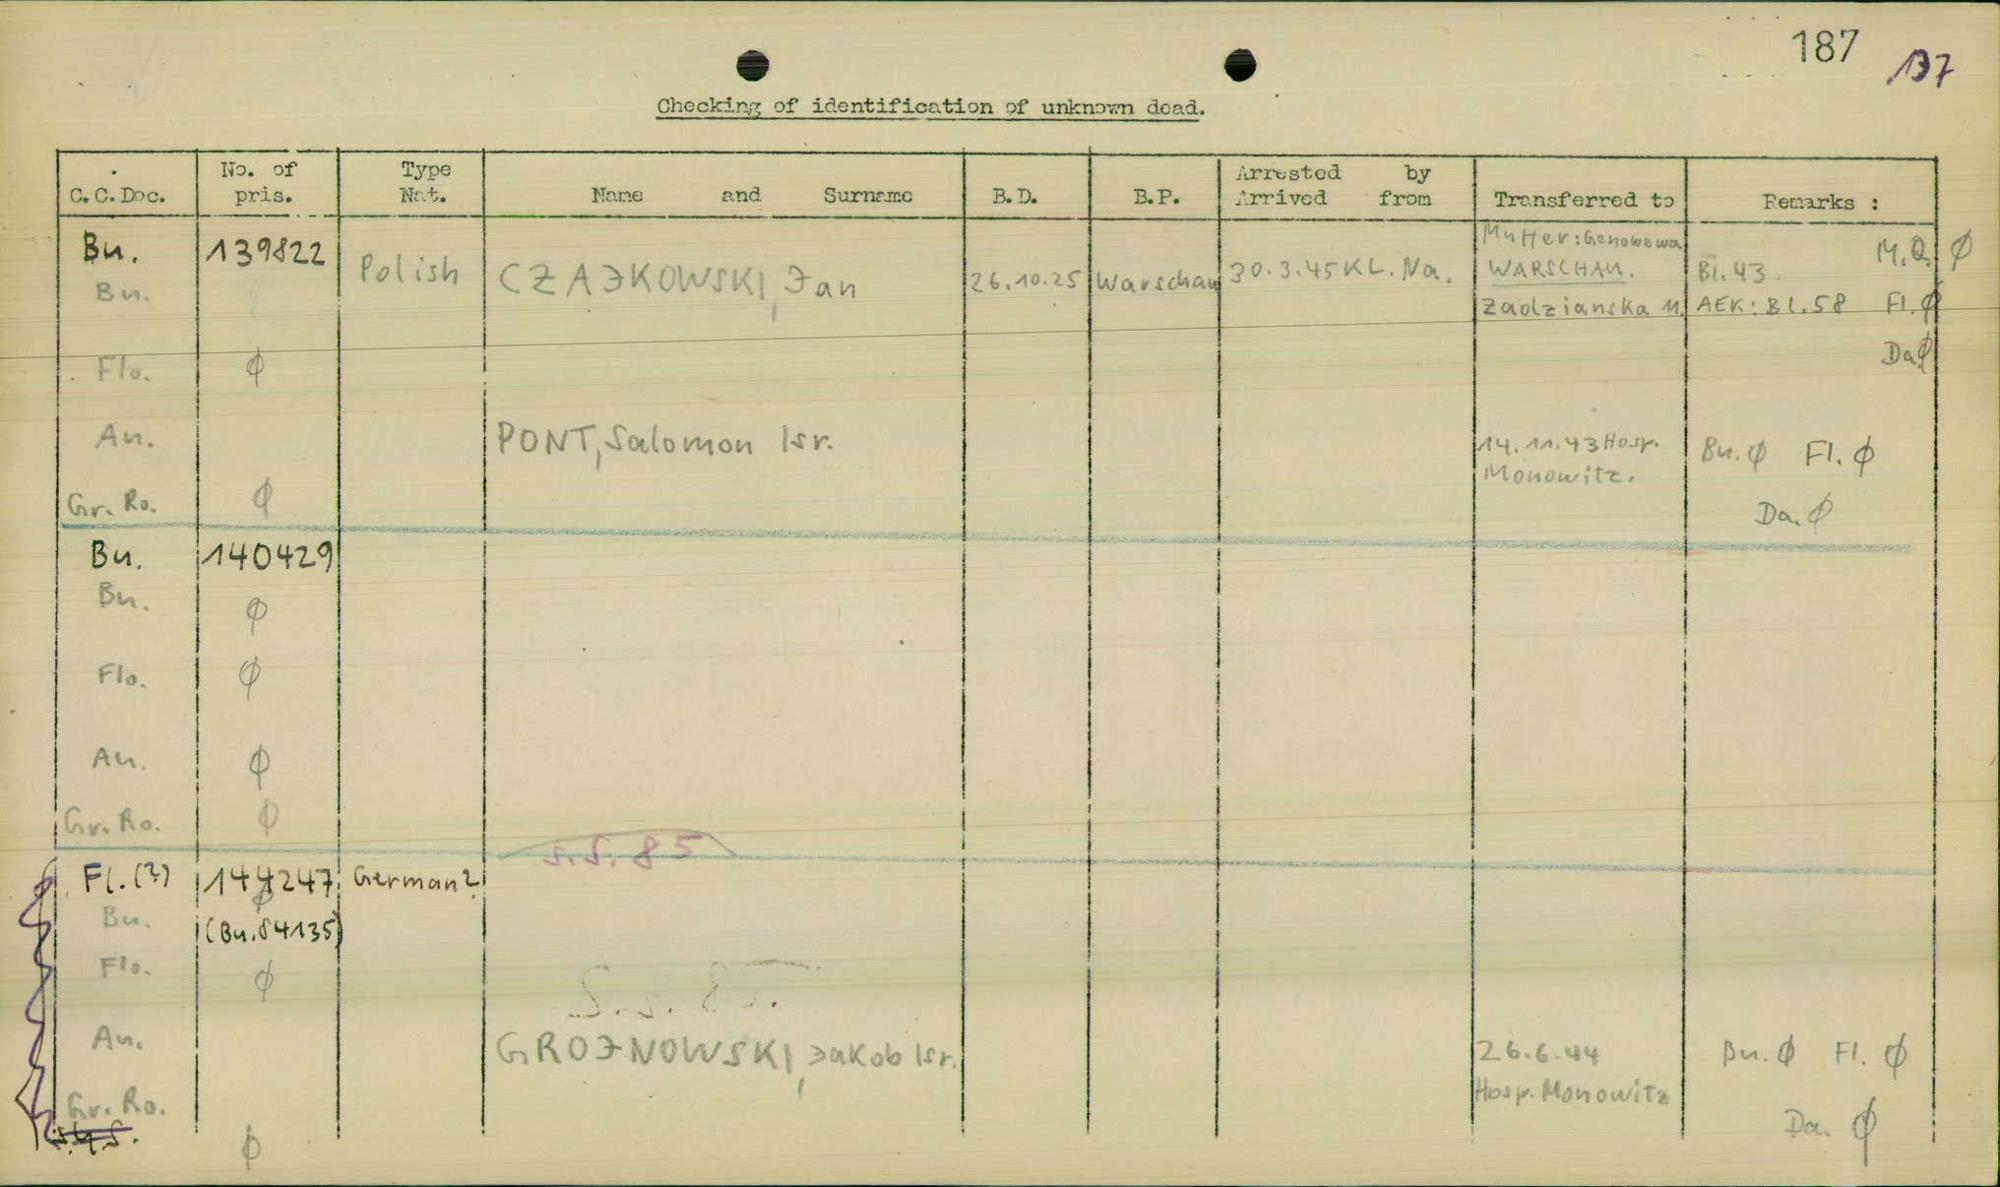 187
137
Checking of identification of unknown dead.
C.C.Doc. No. of pris. Type Nat. Name and Surname B.D. B.P. Arrested by Arrived from Transferred to Remarks :
Bu. 139822 Mutter: Genowewa M.Q. Ø
Bu. Polish CZAJKOWSKI, Jan 26.10.25 Warschau 30.3.45 KL. Na. WARSCHAU. Bl. 43
Zadzianska 11. AEK: Bl. 58 Fl. Ø
Flo. Ø Da Ø
Au. PONT, Salomon Isr. 14.11.43 Hosp. Bu. Ø Fl. Ø
Monowitz.
Gr. Ro. Ø Da. Ø
Bu. 140429
Bu. Ø
Flo. Ø
Au. Ø
Gr. Ro. Ø
S.S. 85
Fl. (?) 144247 German?
Ø
Bu. (Bu. 84135)
Flo. Ø
S.s. 85.
Au. GROJNOWSKI, Jakob Isr. 26.6.44 Bu. Ø Fl. Ø
Hosp. Monowitz
Gr. Ro. Ø Da. Ø